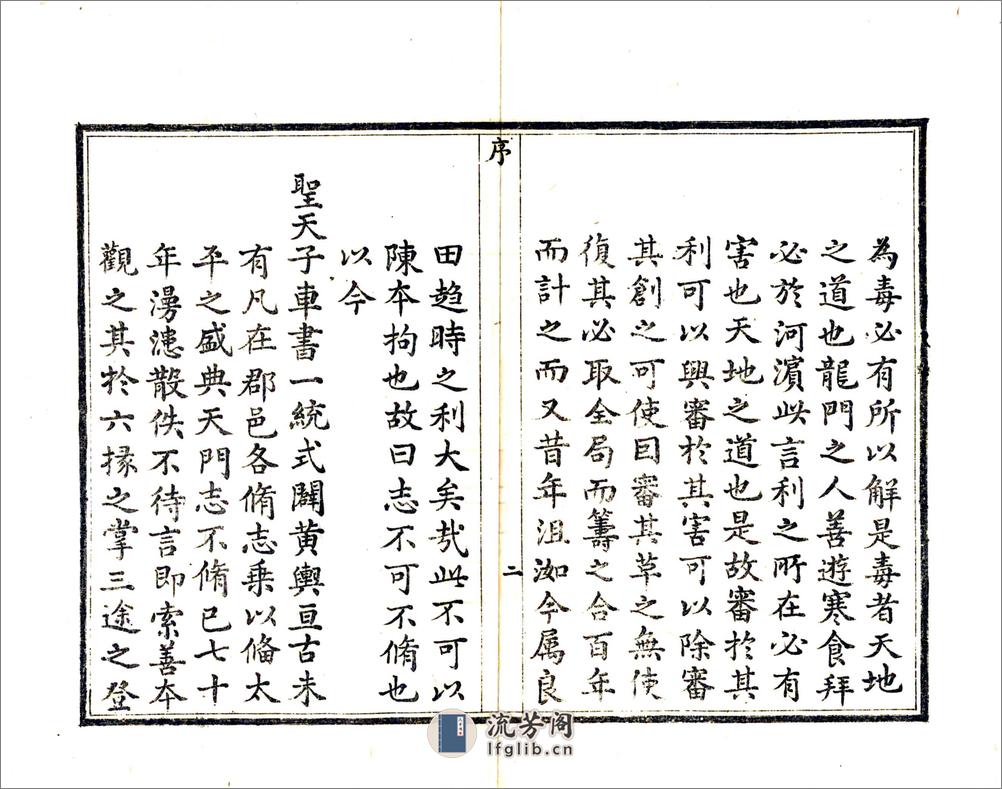 為毒必有所以解是毒者天地
之道也龍門之人善遊寒食拜
必於河濵此言利之所在必有
害也天地之道也是故審於其
利可以興審於其害可以除審
其創之可使因審其草之無使
復其必取全局而籌之合百年
而計之而又昔年沮洳今属良
序
二
田趋時之利大矣㢤此不可以
陳本拘也故曰志不可不脩也
以今
聖天子車書一統式闢黄輿亘古未
有凡在郡邑各脩志乗以俻太
平之盛典天門志不脩已七十
年漫漶散佚不待言即索善本
觀之其於六掾之掌三途之登
流芳阁
lfglib.cn